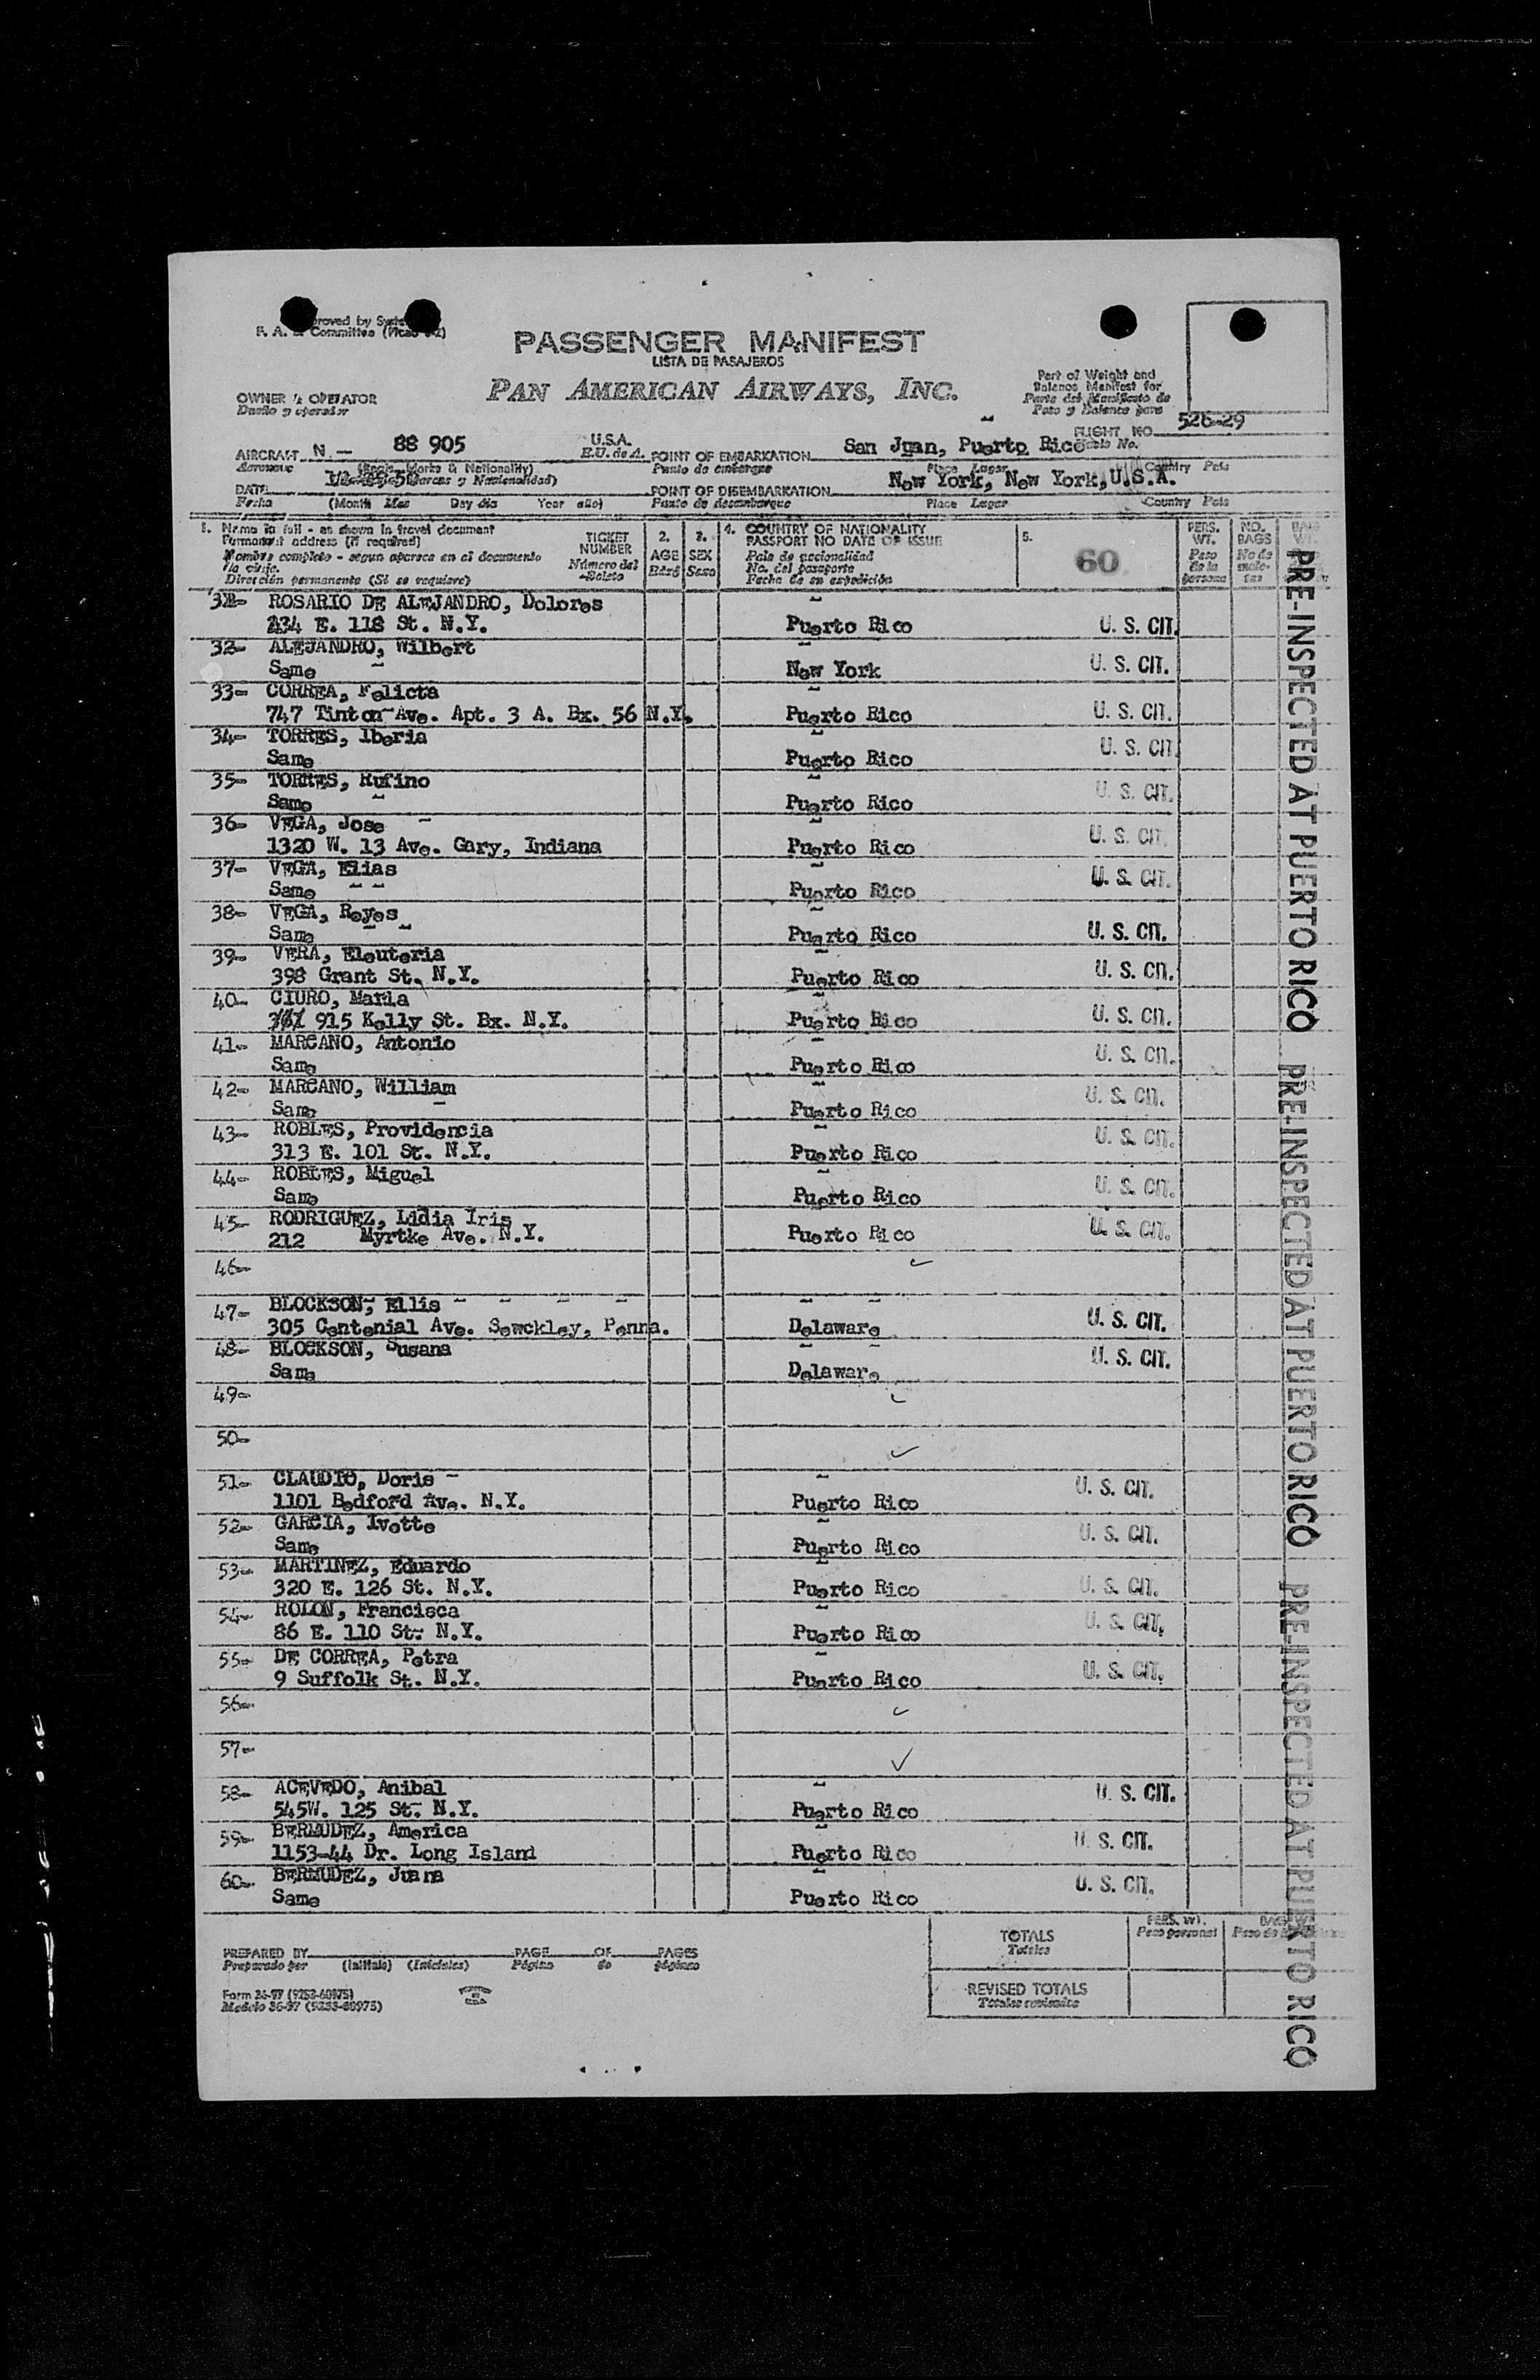 PASSENGER MANIFEST
LISTA DE PASAJEROS
PAN AMERICAN AIRWAYS, INC.
OWNER & OPERATOR
Dueño y operador
Part of Weight and
Balance Manifest for
Parte del Manifiesto de
Peso y Balance para
FLIGHT NO. 526-29
AIRCRAFT N - 88 905 U.S.A.
E.U. de A.
Aeronave
(Regis. Marks & Nationality)
POINT OF EMBARKATION San Juan, Puerto Rico
Punto de embarque Place Lugar Country País
DATE
Fecha (Month Mes Day día Year año)
POINT OF DISEMBARKATION New York, New York, U.S.A.
Punto de desembarque Place Lugar Country País
1. Name in full - as shown in travel document
Permanent address (if required)
Nombre completo - segun aparece en el documento
de viaje.
Dirección permanente (Si se requiere)
TICKET
NUMBER
Número del
Boleto
2.
AGE
Edad
3.
SEX
Sexo
4. COUNTRY OF NATIONALITY
PASSPORT NO DATE OF ISSUE
País de nacionalidad
No. del pasaporte
Fecha de su expedición
5.
60
PERS.
WT.
Peso
de la
persona
NO.
BAGS
No de
male-
tas
ROSARIO DE ALEJANDRO, Dolores
234 E. 118 St. N.Y. Puerto Rico U. S. CIT.
32- ALEJANDRO, Wilbert
Same New York U. S. CIT.
33- CORREA, Felicta
747 Tinton Ave. Apt. 3 A. Bx. 56 N.Y. Puerto Rico U. S. CIT.
34- TORRES, Iberia
Same Puerto Rico U. S. CIT
35- TORRES, Rufino
Same Puerto Rico U. S. CIT.
36- VEGA, Jose
1320 W. 13 Ave. Gary, Indiana Puerto Rico U. S. CIT.
37- VEGA, Elias
Same Puerto Rico U. S. CIT.
38- VEGA, Reyes
Same Puerto Rico U. S. CIT.
39- VERA, Eleuteria
398 Grant St. N.Y. Puerto Rico U. S. CIT.
40- CIURO, Maria
915 Kelly St. Bx. N.Y. Puerto Rico U. S. CIT.
41- MARCANO, Antonio
Same Puerto Rico U. S. CIT.
42- MARCANO, William
Same Puerto Rico U. S. CIT.
43- ROBLES, Providencia
313 E. 101 St. N.Y. Puerto Rico U. S. CIT.
44- ROBLES, Miguel
Same Puerto Rico U. S. CIT.
45- RODRIGUEZ, Lidia Iris
212 Myrtke Ave. N.Y. Puerto Rico U. S. CIT.
46-
47- BLOCKSON, Ellis
305 Centenial Ave. Sewckley, Penna. Delaware U. S. CIT.
48- BLOCKSON, Susana
Same Delaware U. S. CIT.
49-
50-
51- CLAUDIO, Doris
1101 Bedford Ave. N.Y. Puerto Rico U. S. CIT.
52- GARCIA, Ivette
Same Puerto Rico U. S. CIT.
53- MARTINEZ, Eduardo
320 E. 126 St. N.Y. Puerto Rico U. S. CIT.
54- ROLON, Francisca
86 E. 110 St. N.Y. Puerto Rico U. S. CIT.
55- DE CORREA, Petra
9 Suffolk St. N.Y. Puerto Rico U. S. CIT.
56-
57-
58- ACEVEDO, Anibal
545W. 125 St. N.Y. Puerto Rico U. S. CIT.
59- BERMUDEZ, America
1153-44 Dr. Long Island Puerto Rico U. S. CIT.
60- BERMUDEZ, Juana
Same Puerto Rico U. S. CIT.
PRE-INSPECTED AT PUERTO RICO PRE-INSPECTED AT PUERTO RICO PRE-INSPECTED AT PUERTO RICO
PREPARED BY PAGE OF PAGES
Preparado por (Initials) (Iniciales) Página de páginas
TOTALS
Totales
PERS. WT.
Peso personal
REVISED TOTALS
Totales revisados
Form 36-97 (9253-60975)
Modelo 36-97 (9253-60975)